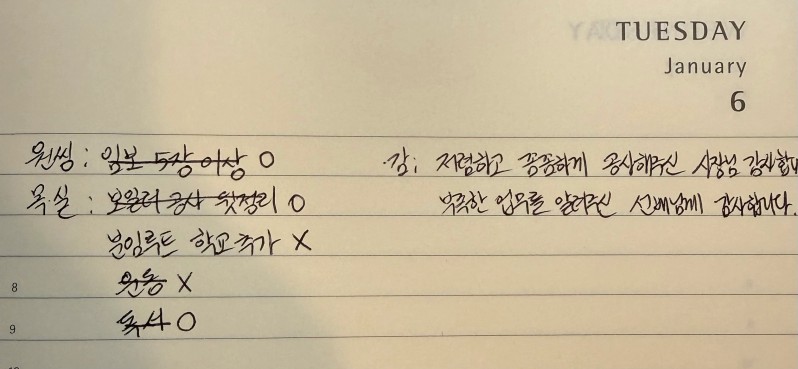 TUESDAY
January
6
원씽 : 임보 5장 이상 O
목·실 : 보일러 공사 뒷정리 O
분임루트 학교 추가 X
8 운동 X
9 독서 O
·감 : 저렴하고 꼼꼼하게 공사해주신 사장님 감사합니
부족한 업무를 알려주신 선배님께 감사합니다.